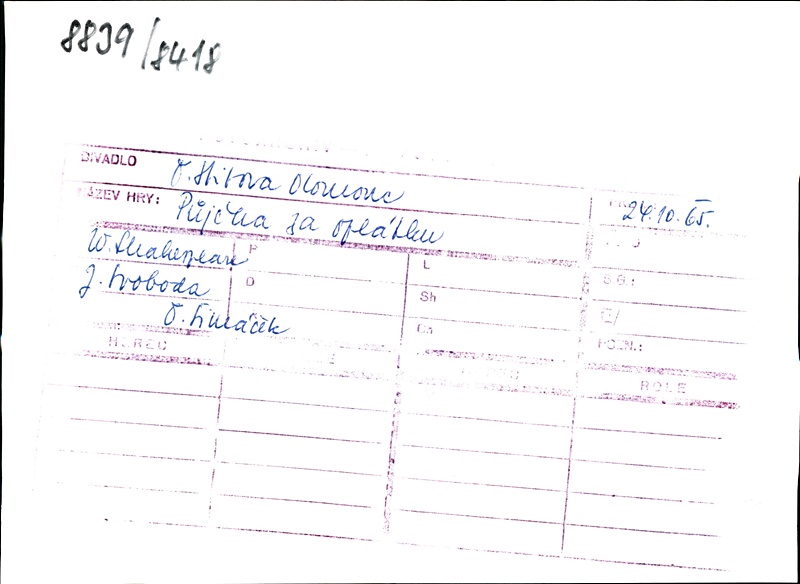 8839/8418
DIVADLO O. Stibora Olomouc
NÁZEV HRY: Půjčka za oplátku
24.10.65.
W. Shakespeare
J. Svoboda
O. Šimáček
P
O
L
Sh
Cn
SG:
POZN.:
HEREC
ROLE